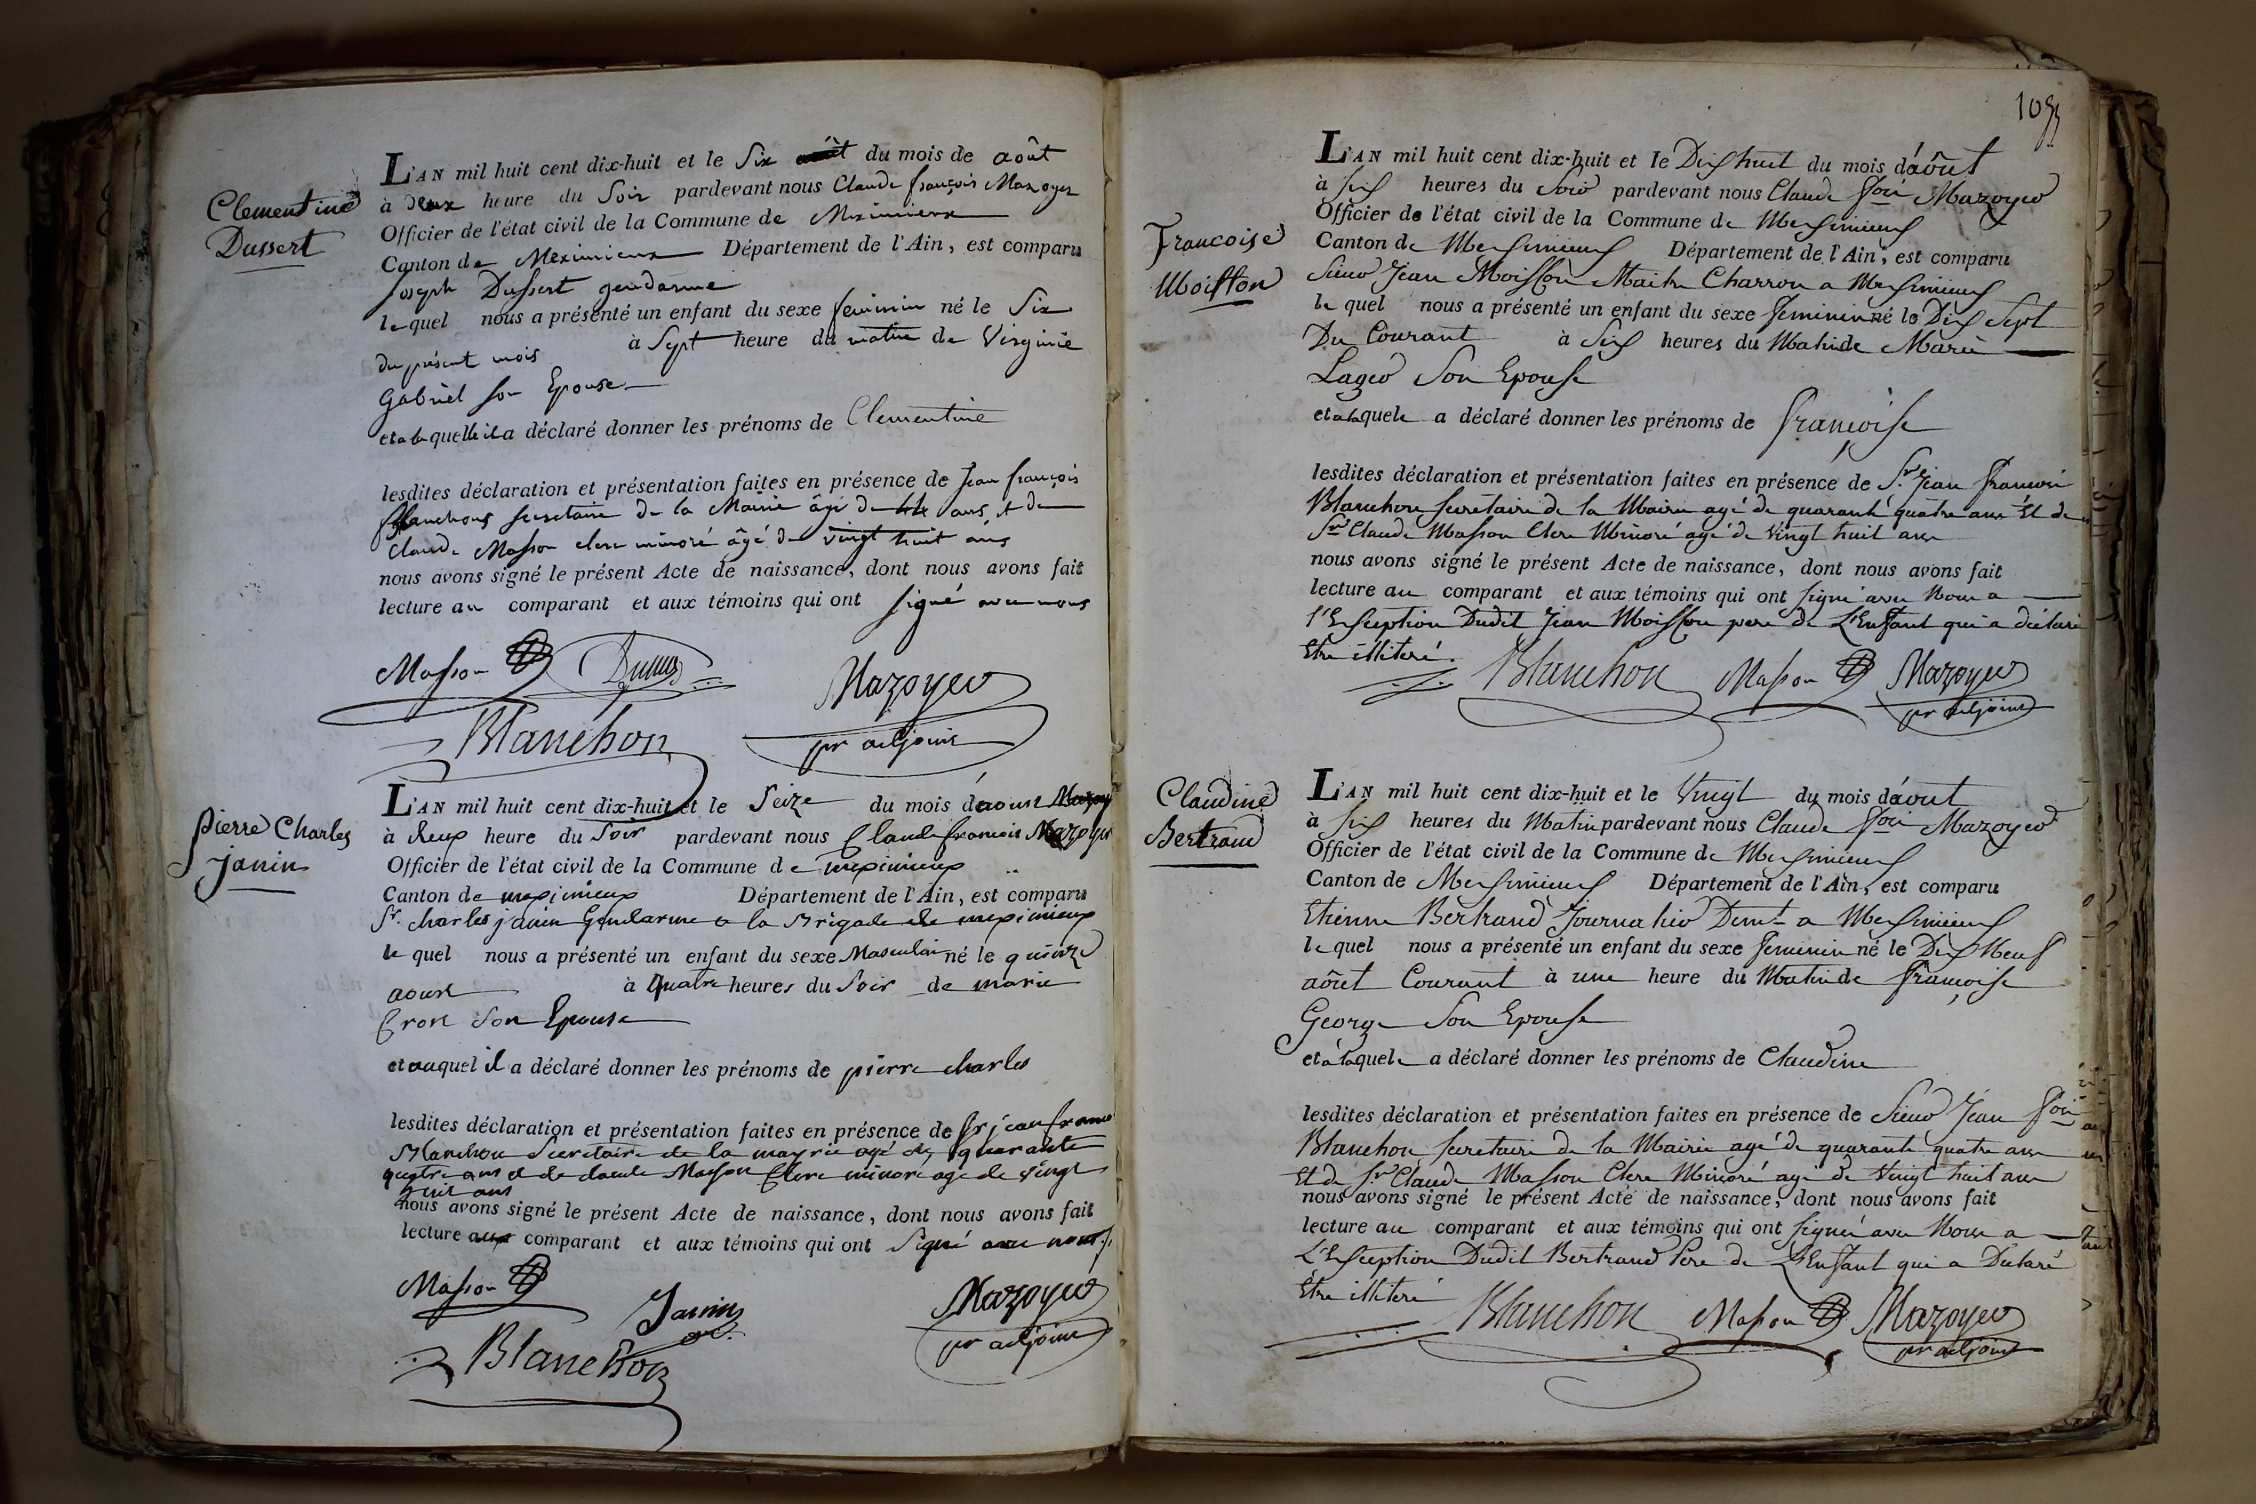 Clementine
Dussert
L'AN mil huit cent dix-huit et le Six du mois de août
à deux heure du Soir pardevant nous Claude françois Mazoyer
Officier de l'état civil de la Commune de Meximieux
Canton de Meximieux Département de l'Ain, est comparu
Joseph Dussert gendarme
le quel nous a présenté un enfant du sexe feminin né le Six
du présent mois à Sept heure du matin de Virginie
Gabriel son Epouse
et a la quelle il a déclaré donner les prénoms de Clementine
lesdites déclaration et présentation faites en présence de Jean françois
Blanchon secretaire de la Mairie âgé de 44 ans, et de
Claude Masson clerc minoré âgé de vingt huit ans
nous avons signé le présent Acte de naissance, dont nous avons fait
lecture au comparant et aux témoins qui ont signé avec nous
Masson Dussert
Mazoyer
Blanchon pr adjoint
Pierre Charles
janin
L'AN mil huit cent dix-huit et le Seize du mois d'aoust
à deux heure du Soir pardevant nous Claude francois Mazoyer
Officier de l'état civil de la Commune de meximieux
Canton de meximieux Département de l'Ain, est comparu
Sr. charles janin Gendarme a la Brigade de meximieux
le quel nous a présenté un enfant du sexe Masculin né le quinze
aoust à quatre heures du Soir de marie
Son Epouse
et auquel il a déclaré donner les prénoms de pierre charles
lesdites déclaration et présentation faites en présence de Sr jean franc
Blanchon Secretaire de la mayrie agé de quarante
quatre ans et de claude Masson Clerc minoré agé de vingt
huit ans
nous avons signé le présent Acte de naissance, dont nous avons fait
lecture au comparant et aux témoins qui ont Signé avec nous
Masson
Janin
Mazoyer
Blanchon pr adjoint
Francoise
Moisson
L'AN mil huit cent dix-huit et le Dix huit du mois d'août
à six heures du Soir pardevant nous Claude fçois Mazoyer
Officier de l'état civil de la Commune de Meximieux
Canton de Meximieux Département de l'Ain, est comparu
Sieur Jean Moisson Maitre Charron a Meximieux
le quel nous a présenté un enfant du sexe feminin né le Dix Sept
Du Courant à Six heures du Matin de Marie
Lager Son Epouse
et a la quele a déclaré donner les prénoms de françoise
lesdites déclaration et présentation faites en présence de Sr. Jean François
Blanchon Secretaire de la Mairie agé de quarante quatre ans Et de
Sr Claude Masson Clerc Minoré agé de vingt huit ans
nous avons signé le présent Acte de naissance, dont nous avons fait
lecture au comparant et aux témoins qui ont signé avec Nous a
l'Exception Dudit Jean Moisson pere de L'Enfant qui a déclaré
Etre illiteré.
Blanchon Masson Mazoyer
pr adjoint
Claudine
Bertrand
L'AN mil huit cent dix-huit et le Vingt du mois d'aout
à six heures du Matin pardevant nous Claude fçois Mazoyer
Officier de l'état civil de la Commune de Meximieux
Canton de Meximieux Département de l'Ain, est comparu
Etienne Bertrand Journalier Demt a Meximieux
le quel nous a présenté un enfant du sexe feminin né le Dix Neuf
aôut Courant à une heure du Matin de françoise
George Son Epouse
et a la quele a déclaré donner les prénoms de Claudine
lesdites déclaration et présentation faites en présence de Sieur Jean fçois
Blanchon Secretaire de la Mairie agé de quarante quatre ans
Et de Sr Claude Masson Clerc Minoré agé de Vingt huit ans
nous avons signé le présent Acte de naissance, dont nous avons fait
lecture au comparant et aux témoins qui ont signé avec Nous a
L'Exception Dudit Bertrand Pere de L'Enfant qui a Déclaré
Etre illiteré
Blanchon Masson Mazoyer
pr adjoint